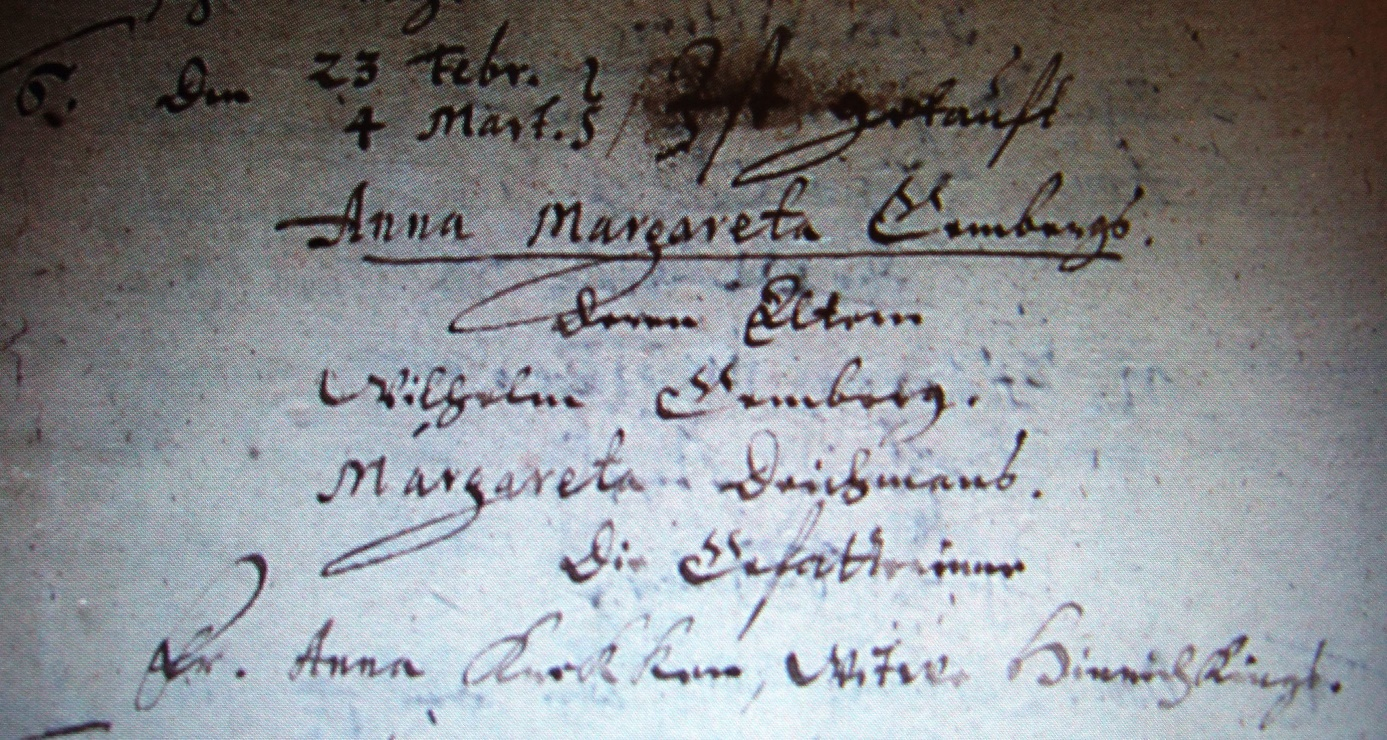 6. Den 23 Febr.
4 Mart. Ist getauft
Anna Margareta Gembergs.
deren Eltern
Wilhelm Gemberg.
Margareta Deichmans.
Die Gefatterinne
Fr. Anna Witwe Hinrich Kings.